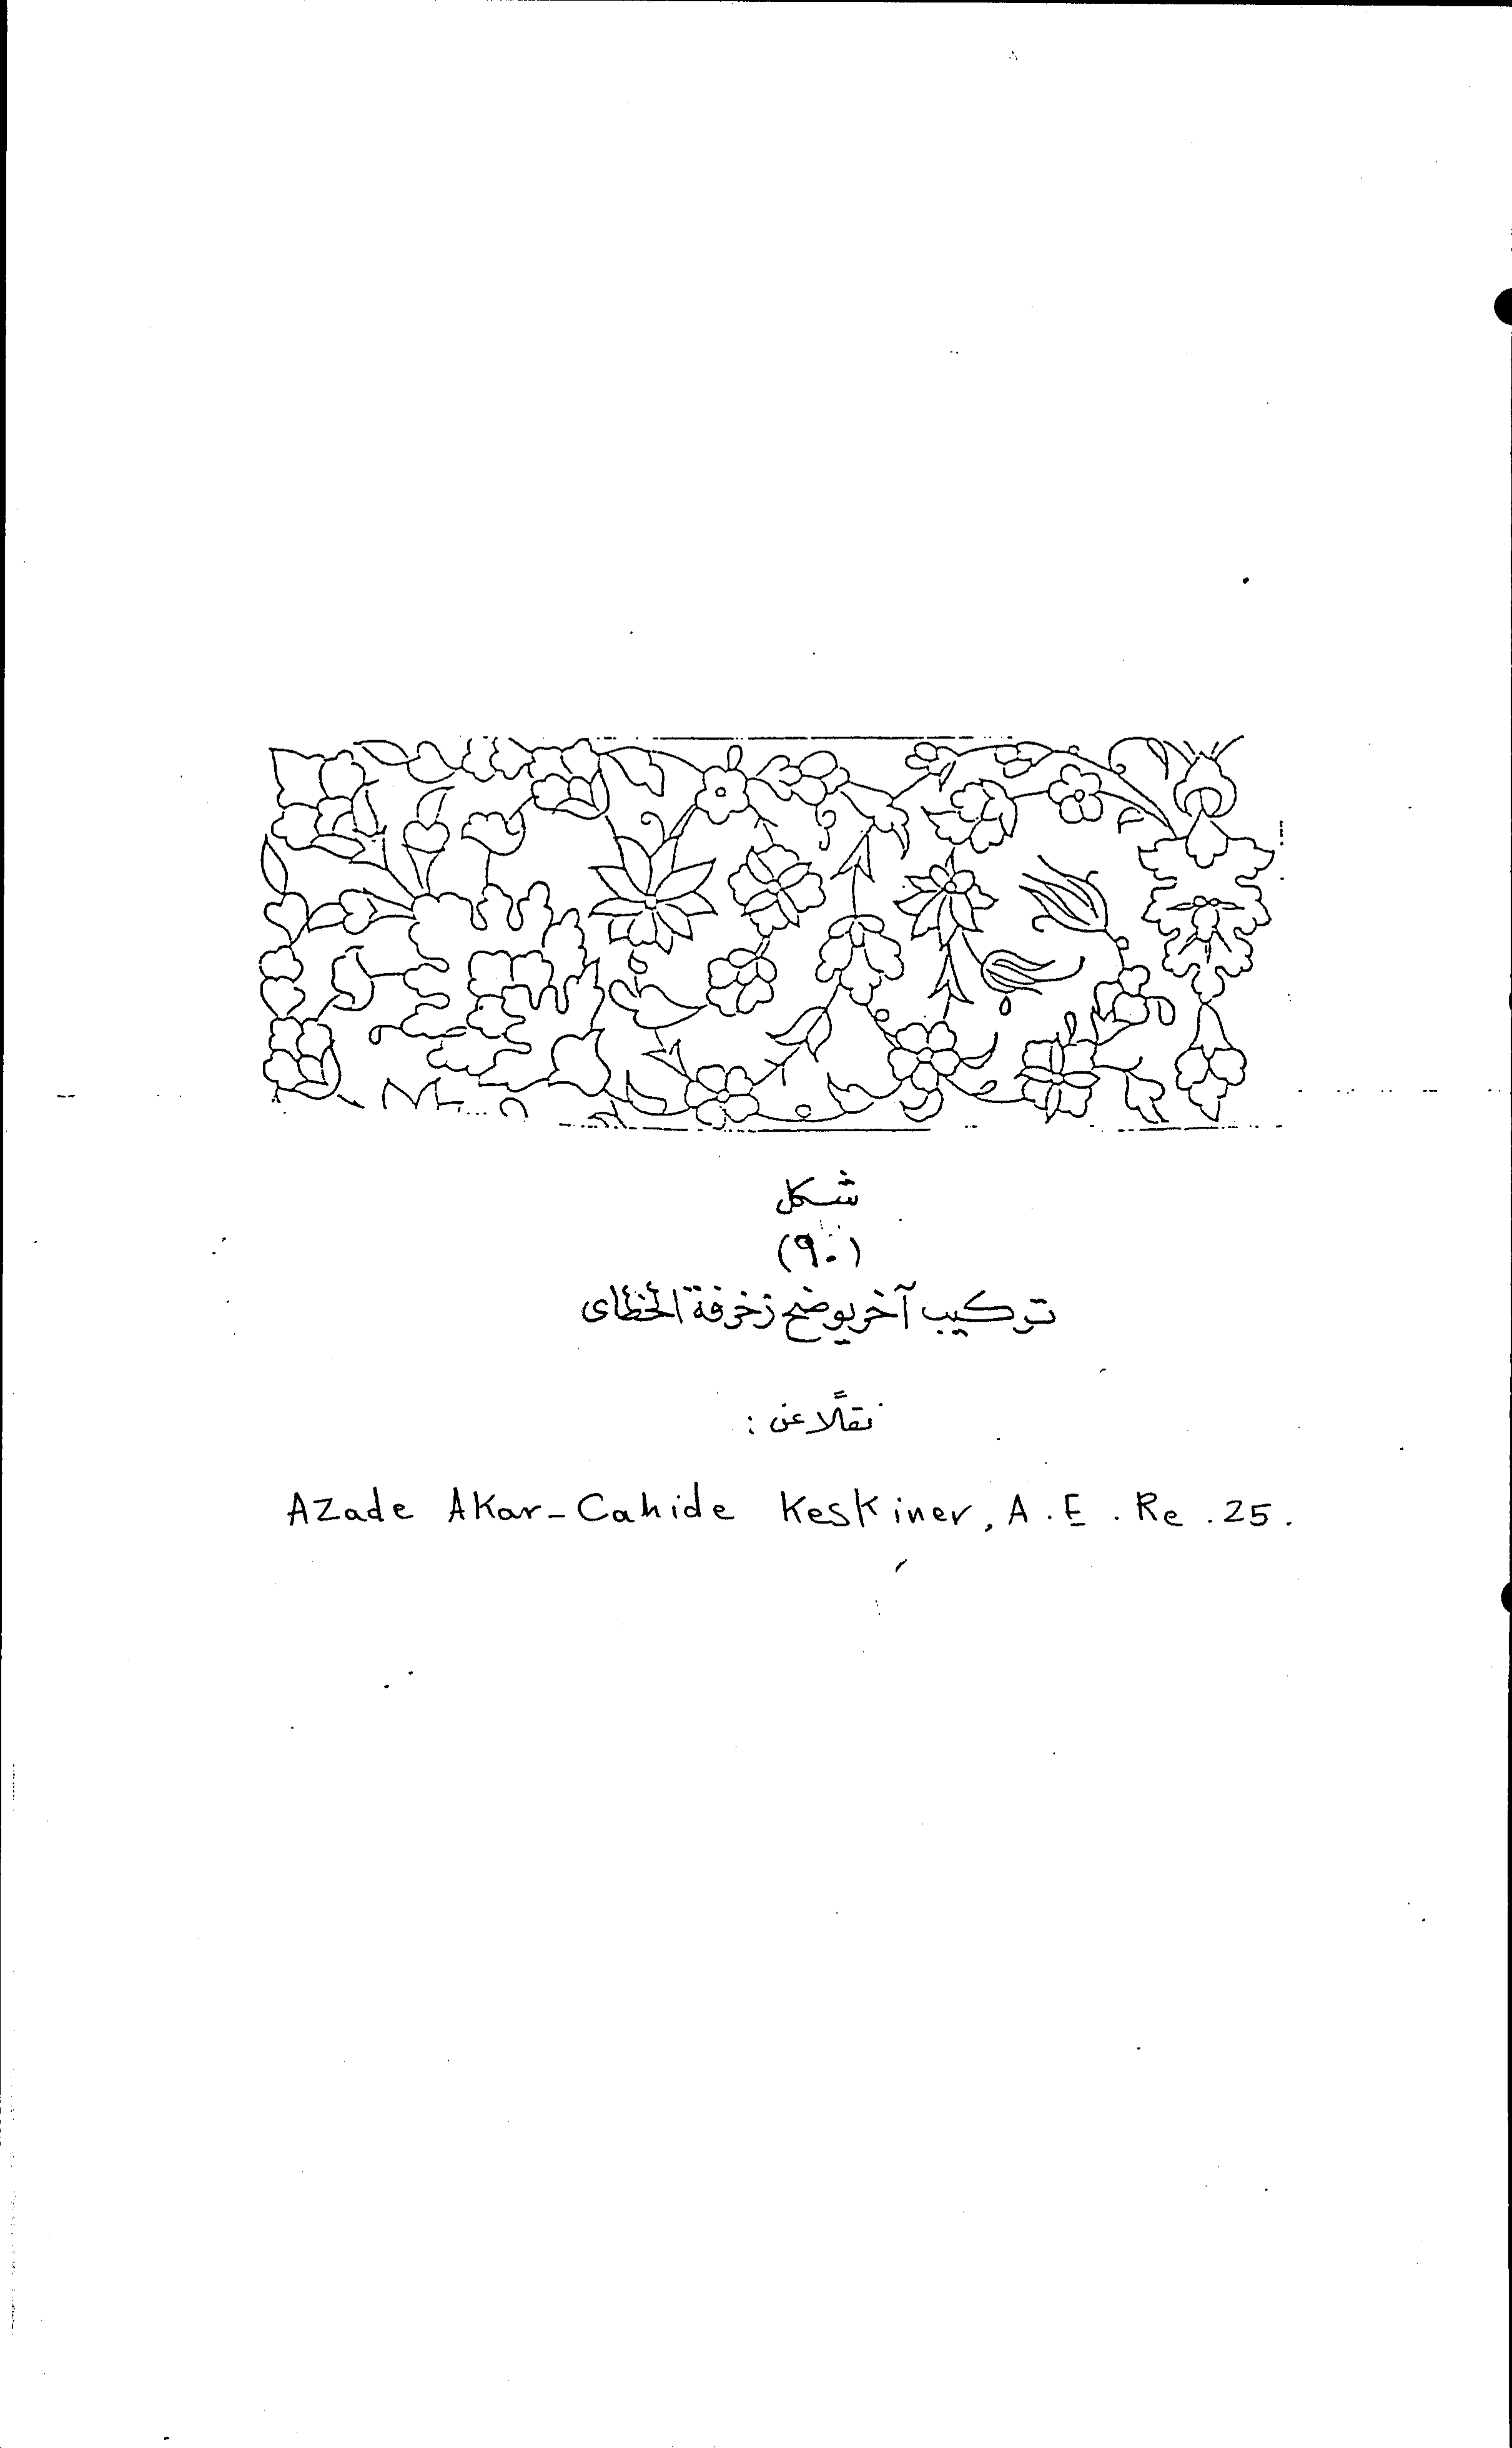 شكل
(٩٠)
تركيب آخر يوضح زخرفة الخطاى
نقلًا عن :
Azade Akar-Cahide Keskiner, A.E.Re.25.